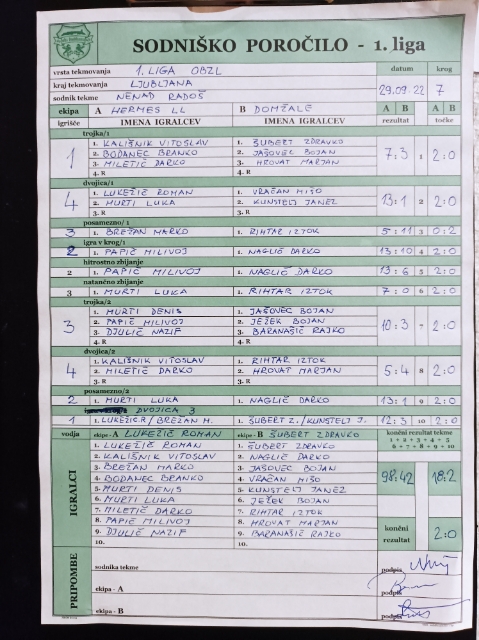 SODNIŠKO POROČILO - 1. liga
vrsta tekmovanja 1. LIGA OBZL datum krog
kraj tekmovanja LJUBLJANA 29.09.22 7
sodnik tekme NENAD RADOŠ
ekipa A HERMES LL B DOMŽALE A B A B
igrišče IMENA IGRALCEV IMENA IGRALCEV rezultat točke
trojka/1
1 1. KALIŠNIK VITOSLAV 1. ŠUBERT ZDRAVKO 7:3 1 2:0
2. BODANEC BRANKO 2. JAŠOVEC BOJAN
3. MILETIČ DARKO 3. HROVAT MARJAN
4. R 4. R
dvojica/1
4 1. LUKEŽIČ ROMAN 1. VRAČAN MIŠO 13:1 2 2:0
2. MURTI LUKA 2. KUNSTELJ JANEZ
3. R 3. R
posamezno/1
3 1. BREŽAN MARKO 1. RIHTAR IZTOK 5:11 3 0:2
igra v krog/1
2 1. PAPIČ MILIVOJ 1. NAGLIČ DARKO 13:10 4 2:0
hitrostno zbijanje
2 1. PAPIČ MILIVOJ 1. NAGLIČ DARKO 13:6 5 2:0
natančno zbijanje
3 1. MURTI LUKA 1. RIHTAR IZTOK 7:0 6 2:0
trojka/2
3 1. MURTI DENIS 1. JAŠOVEC BOJAN 10:3 7 2:0
2. PAPIČ MILIVOJ 2. JEŽEK BOJAN
3. DJULIČ NAZIF 3. BARANAŠIČ RAJKO
4. R 4. R
dvojica/2
4 1. KALIŠNIK VITOSLAV 1. RIHTAR IZTOK 5:4 8 2:0
2. MILETIČ DARKO 2. HROVAT MARJAN
3. R 3. R
posamezno/2
2 1. MURTI LUKA 1. NAGLIČ DARKO 13:1 9 2:0
DVOJICA 3
1 1. LUKEŽIČ R / BREŽAN M. 1. ŠUBERT Z./KUNSTELJ J. 12:3 10 2:0
vodja ekipe - A LUKEŽIČ ROMAN ekipe - B ŠUBERT ZDRAVKO končni rezultat tekme
1 + 2 + 3 + 4 + 5
+ 6 + 7 + 8 + 9 + 10
IGRALCI
1. LUKEŽIČ ROMAN 1. ŠUBERT ZDRAVKO
2. KALIŠNIK VITOSLAV 2. NAGLIČ DARKO
3. BREŽAN MARKO 3. JAŠOVEC BOJAN
4. BODANEC BRANKO 4. VRAČAN MIŠO 98:42 18:2
5. MURTI DENIS 5. KUNSTELJ JANEZ
6. MURTI LUKA 6. JEŽEK BOJAN
7. MILETIČ DARKO 7. RIHTAR IZTOK
8. PAPIČ MILIVOJ 8. HROVAT MARJAN
9. DJULIČ NAZIF 9. BARANAŠIČ RAJKO
10. 10.
končni rezultat 2:0
PRIPOMBE
sodnika tekme podpis
ekipa - A podpis
ekipa - B podpis